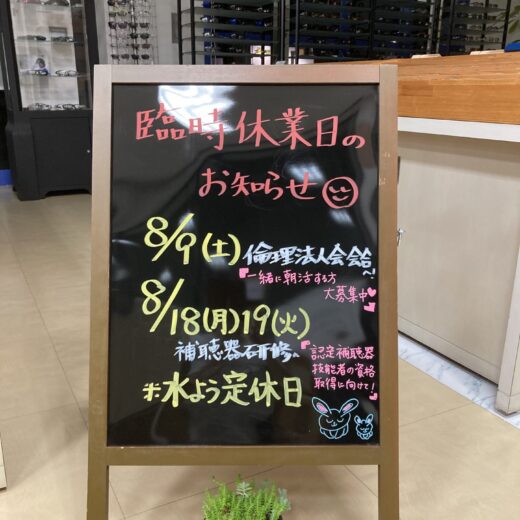 臨時休業日の
お知らせ
8/9(土) 倫理法人会へ!
一緒に朝活する方
大募集中
8/18(月)19(火)
補聴器研修へ
認定補聴器
技能者の資格
取得に向けて!
水よう定休日